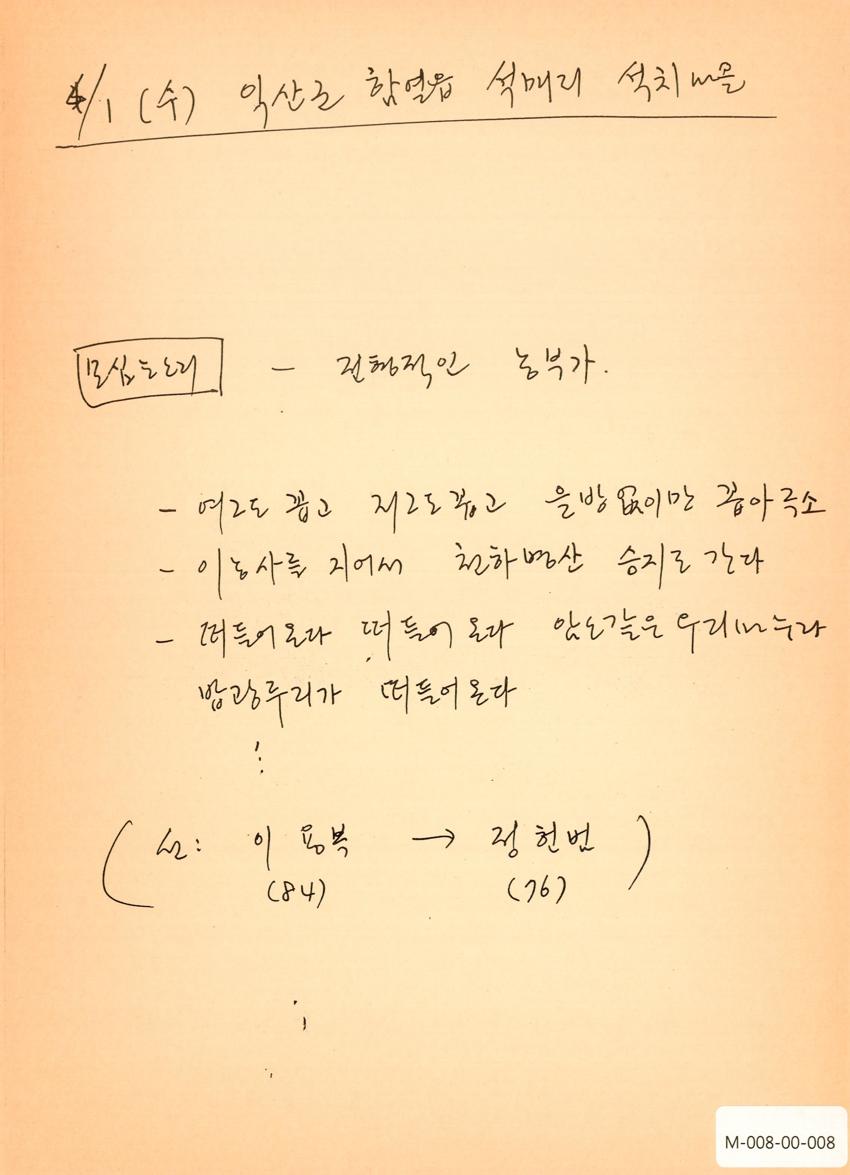 4/1 (수) 익산군 함열읍 석매리 석치마을
모심는소리 - 전형적인 농부가.
- 여그도 꼽고 저그도 꼽고 을방없이만 꼽아주소
- 이농사를 지어서 천하명산 승지로 간다
- 떠들어온다 떠들어온다 암소같은 우리마누라
밥광주리가 떠들어온다
⋮
(선: 이용복 → 정헌범)
(84) (76)
M-008-00-008